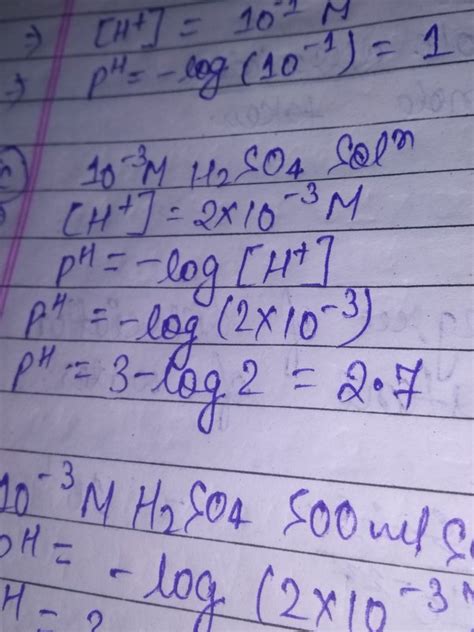 ⇒ [H⁺] = 10⁻¹ M
⇒ pH = -log(10⁻¹) = 1
10⁻³M H₂SO₄ Solⁿ
[H⁺] = 2×10⁻³ M
pH = -log [H⁺]
pH = -log(2×10⁻³)
pH = 3-log2 = 2.7
10⁻³ M H₂SO₄ 500 ml
pH = -log (2×10⁻³
H =